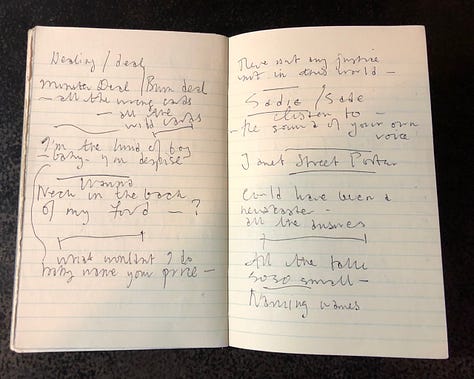 Dealing / deal
Minster Deal / Bum deal
– all the wrong cards
– all the
wild cards
I'm the kind of boy
– baby – you despise
Wanna
Neck in the back
of my Ford – ?
what wouldn't I do
baby name your price –
There isn't any justice
not in this world –
Sadie / Sade
listen to –
– the sound of your own
voice
Janet Street Porter
Could have been a
newscaster –
all the answers
All the talk
so so small –
Naming names